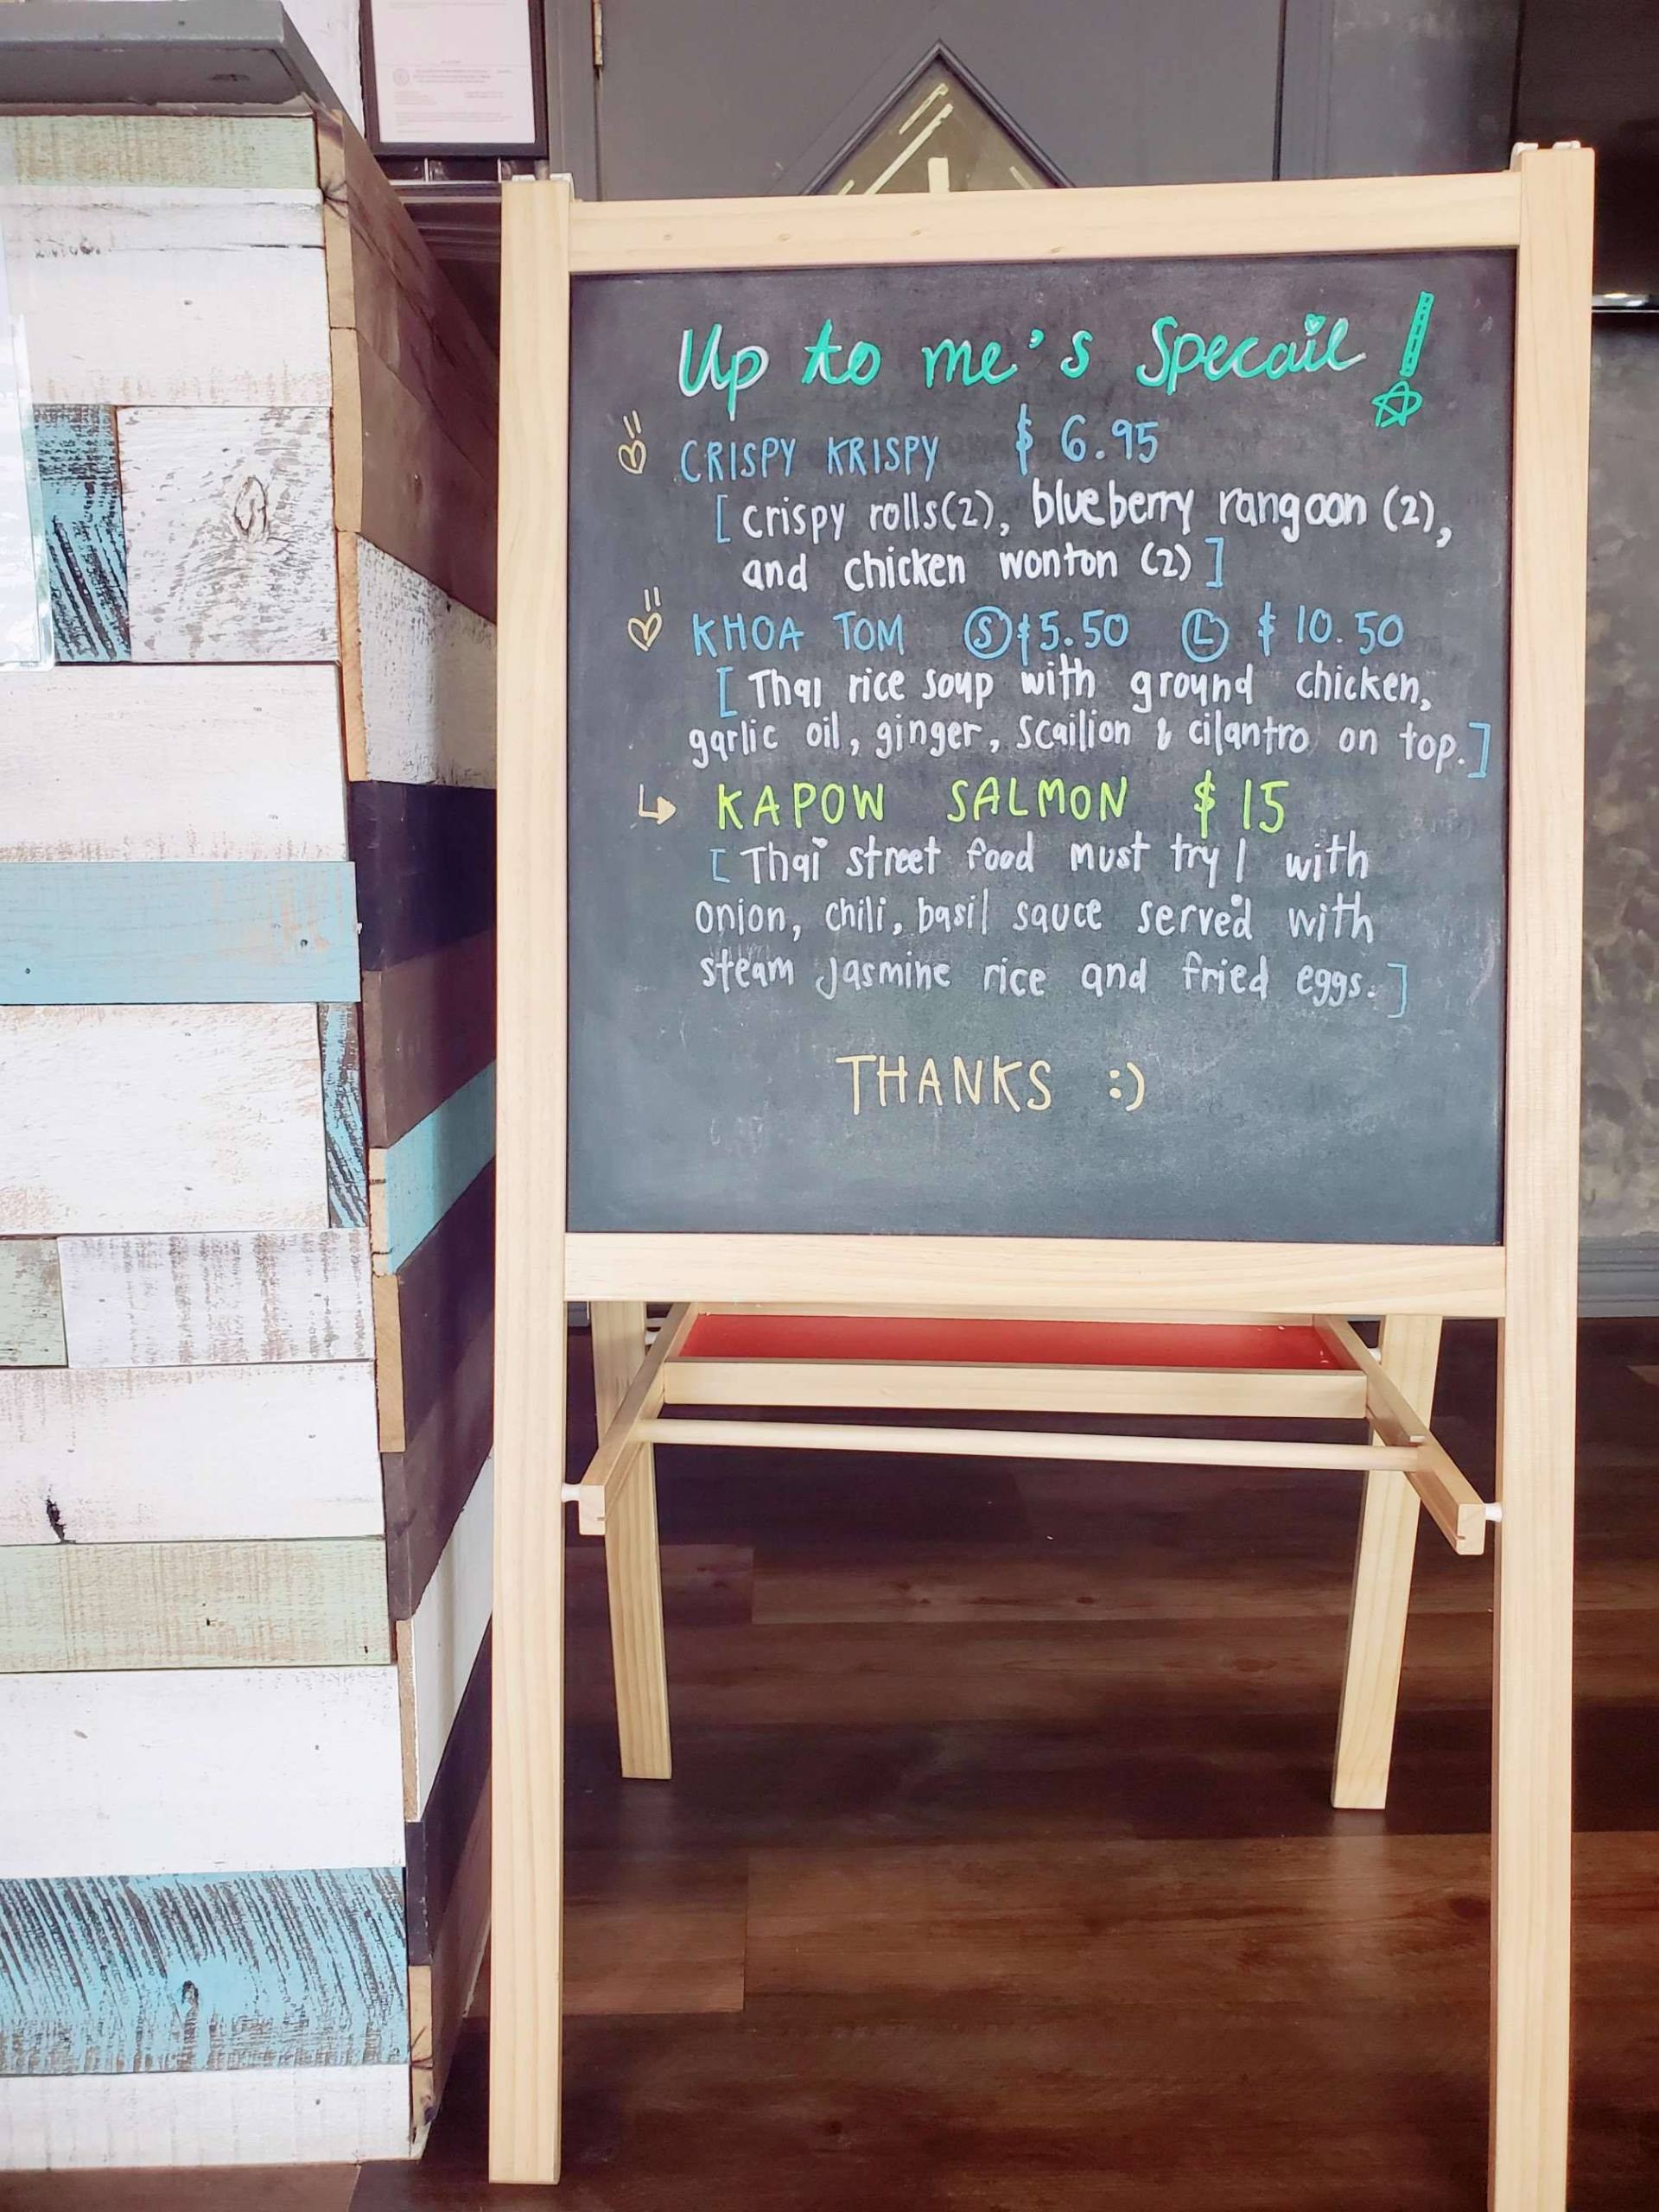 Up to me's Specail!
CRISPY KRISPY $ 6.95
[ crispy rolls(2), blueberry rangoon (2),
and chicken wonton (2) ]
KHOA TOM Ⓢ $5.50 Ⓛ $ 10.50
[ Thai rice soup with ground chicken,
garlic oil, ginger, scailion & cilantro on top. ]
↳ KAPOW SALMON $ 15
[ Thai street food must try! with
onion, chili, basil sauce served with
steam Jasmine rice and fried eggs. ]
THANKS :)